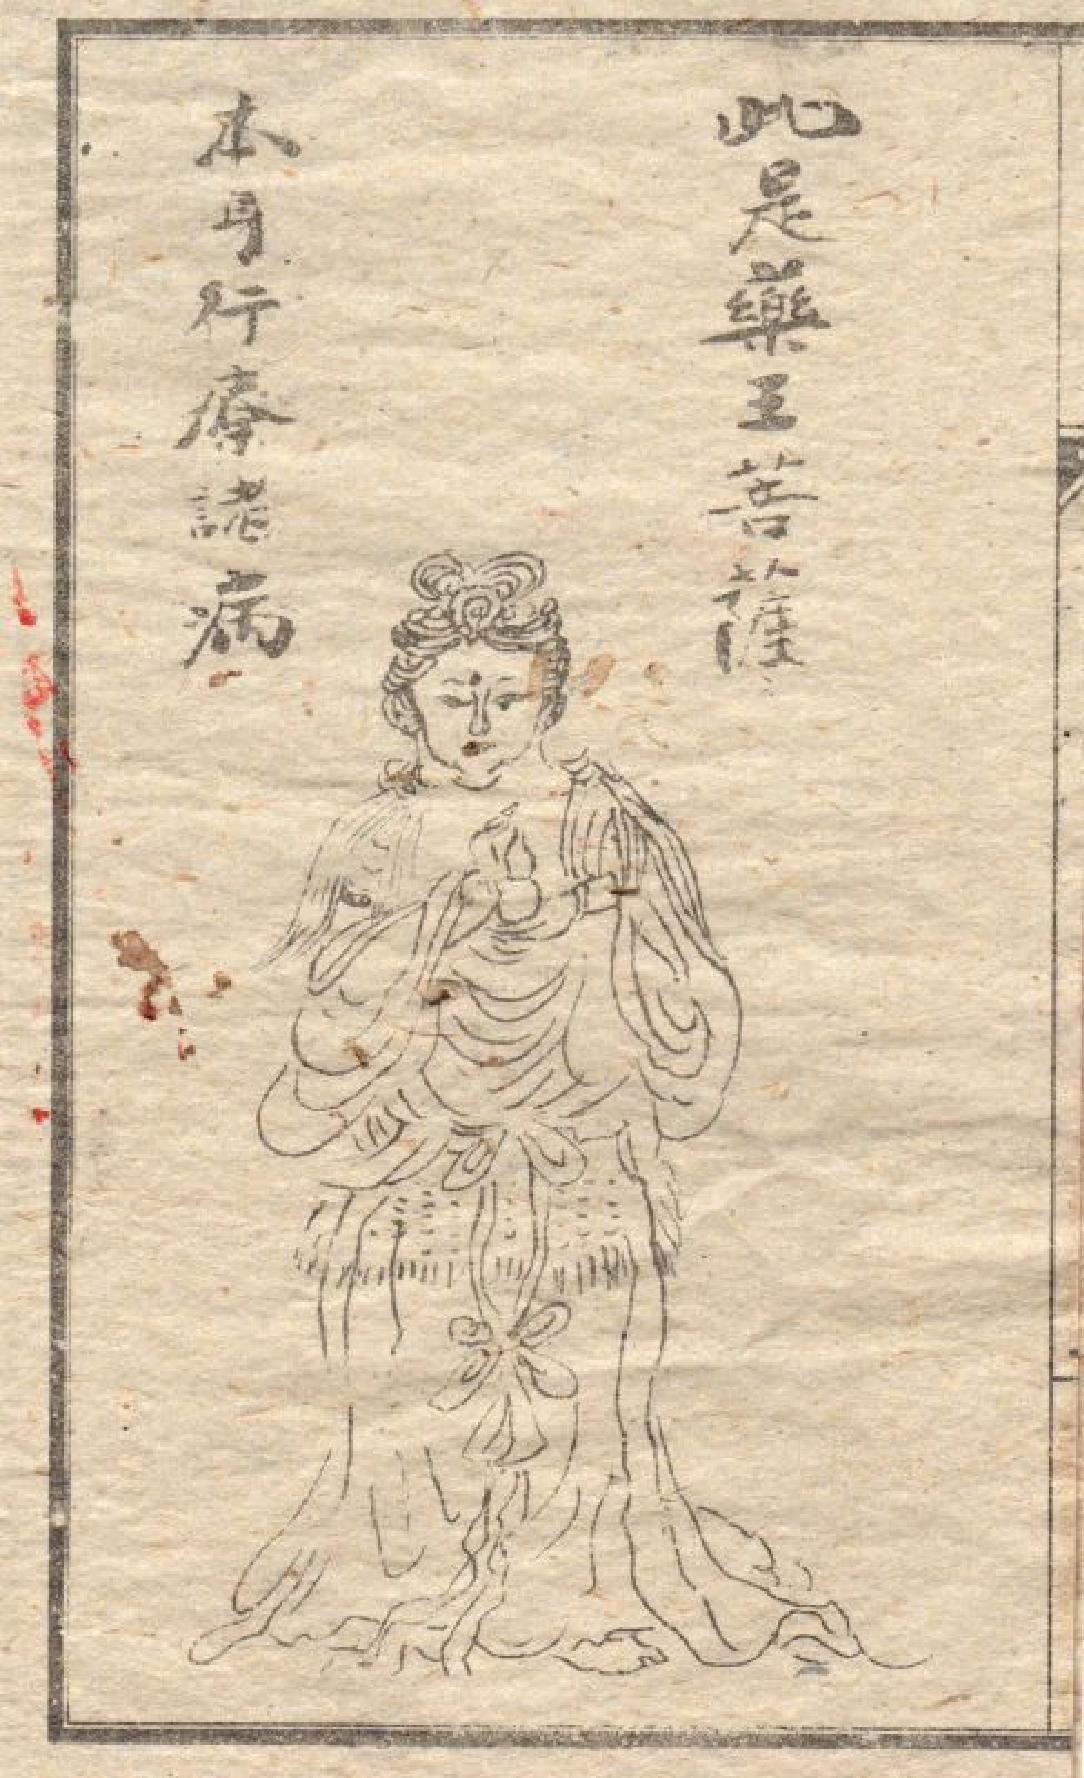 此是藥王菩薩
本身行療諸病